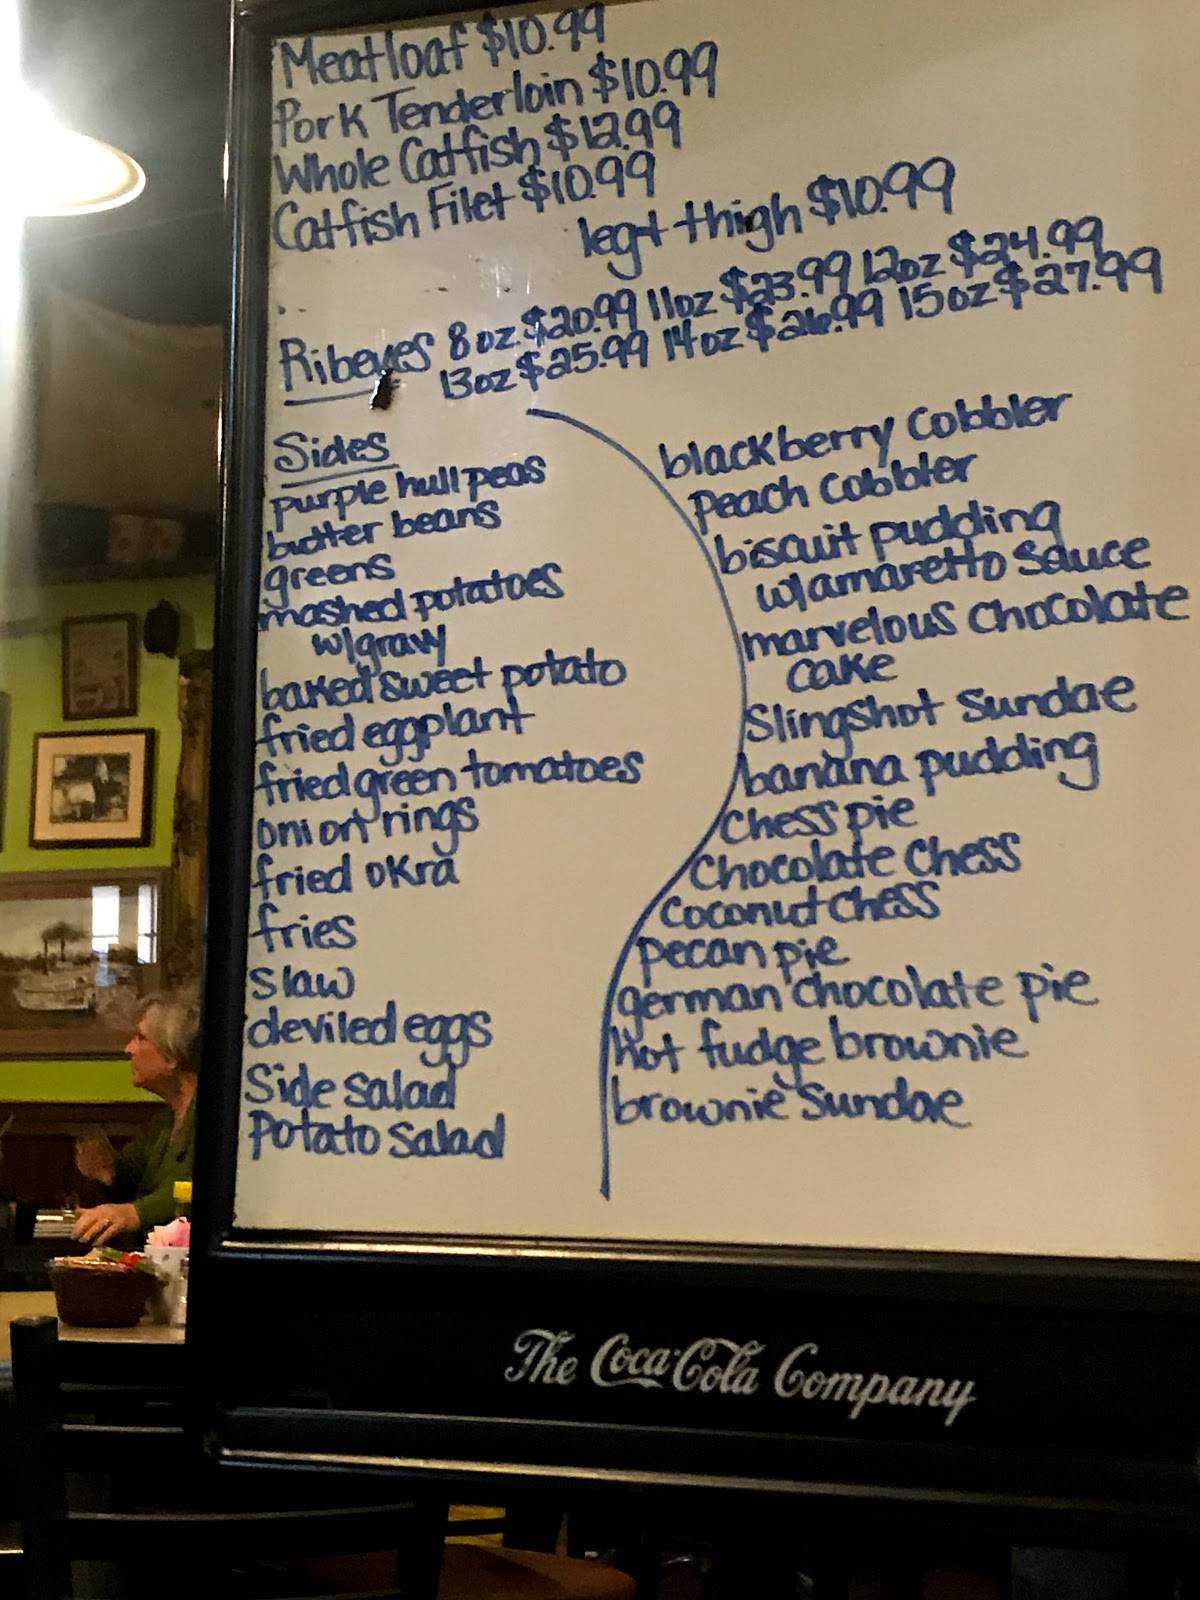 Meatloaf $10.99
Pork Tenderloin $10.99
Whole Catfish $12.99
Catfish Filet $10.99
leg+thigh $10.99
Ribeyes 8oz. $20.99 11oz $23.99 12oz $24.99
13oz $25.99 14oz $26.99 15oz $27.99
Sides
purple hull peas
butter beans
greens
mashed potatoes
w/gravy
baked sweet potato
fried eggplant
fried green tomatoes
onion rings
fried okra
fries
slaw
deviled eggs
Side salad
Potato salad
blackberry cobbler
Peach cobbler
biscuit pudding
w/amaretto sauce
marvelous chocolate
cake
Slingshot sundae
banana pudding
Chess pie
Chocolate Chess
Coconut Chess
pecan pie
german chocolate pie
hot fudge brownie
brownie sundae
The Coca-Cola Company